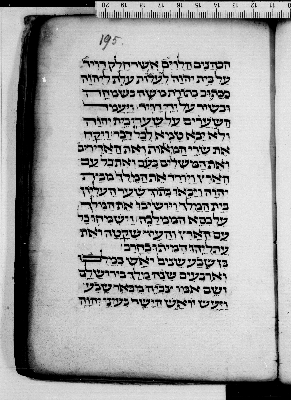 195.
הכהנים הלוים אשר חלק דויד
על בית יהוה להעלות עלות ליהוה
ככתוב בתורת משה בשמחה
ובשיר על ידי דויד ויעמד
השערים על שערי בית יהוה
ולא יבא טמיא לכל דבר ויקח
את שרי המאות ואת האדירים
ואת המשלים בעם ואת כל עם
הארץ ויורד את המלך מבית
יהוה ויבאו בתוך שער העליון
בית המלך ויושיבו את המלך
על כסא הממלכה וישמחו כל
עם הארץ והעיר שקטה ואת
עתליהו המיתו בחרב
בן שבע שנים יאש במלכו
וארבעים שנה מלך בירושלם
ושם אמו צביה מבאר שבע
ויעש יואש הישר בעיני יהוה